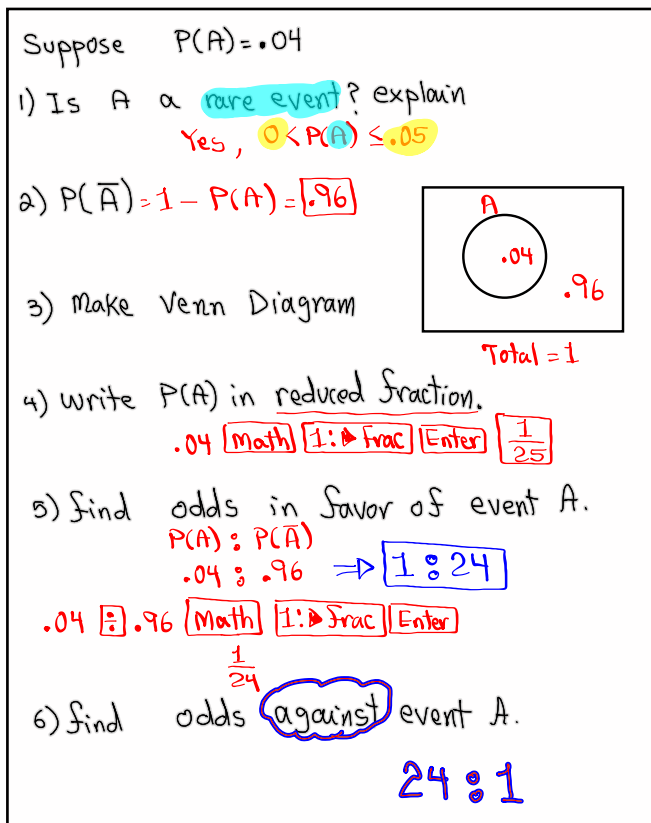 Suppose P(A)=.04
1) Is A a rare event? explain
Yes, 0<P(A)≤.05
2) P(A̅)=1-P(A)=.96
A
.04
.96
3) Make Venn Diagram
Total=1
4) write P(A) in reduced fraction.
.04 Math 1:▶Frac Enter 1/25
5) find odds in favor of event A.
P(A) : P(A̅)
.04 : .96 ⇒ 1 : 24
.04 ÷ .96 Math 1:▶Frac Enter
1/24
6) find odds against event A.
24 : 1